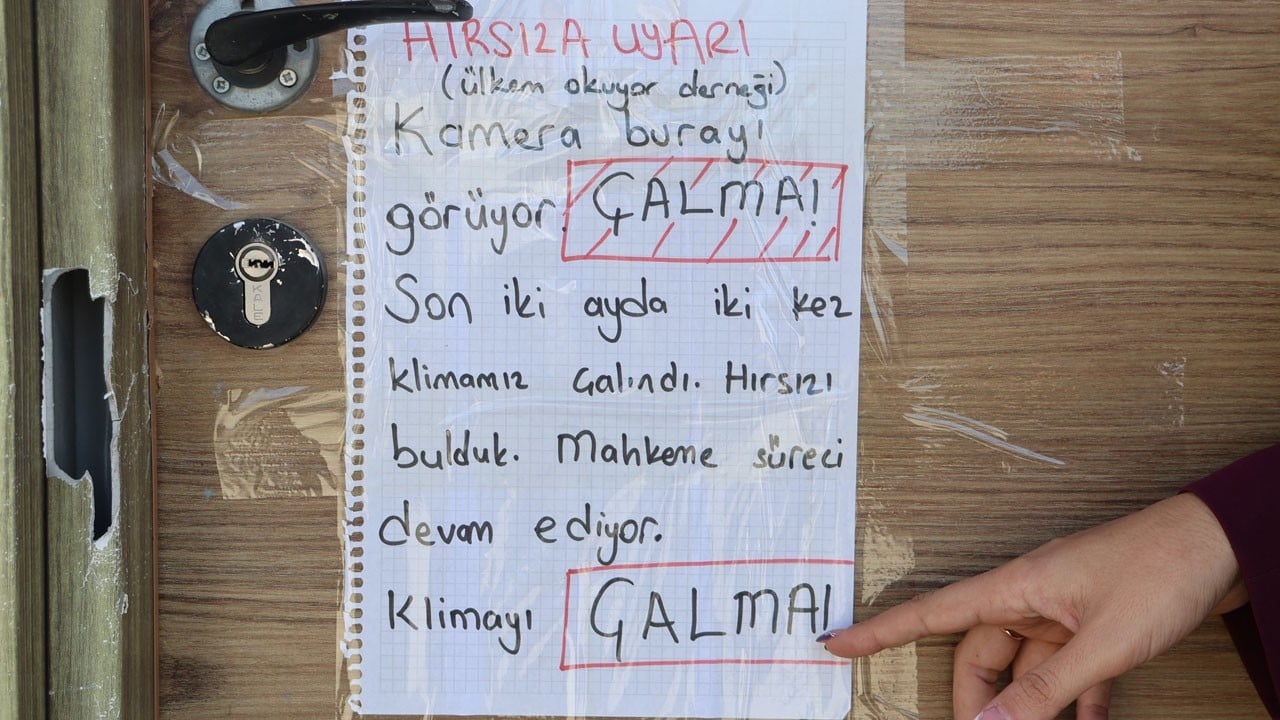 HIRSIZA UYARI
(ülkem okuyor derneği)
Kamera burayı
görüyor. ÇALMA!
Son iki ayda iki kez
klimamız çalındı. Hırsızı
bulduk. Mahkeme süreci
devam ediyor.
Klimayı ÇALMA!
KALE